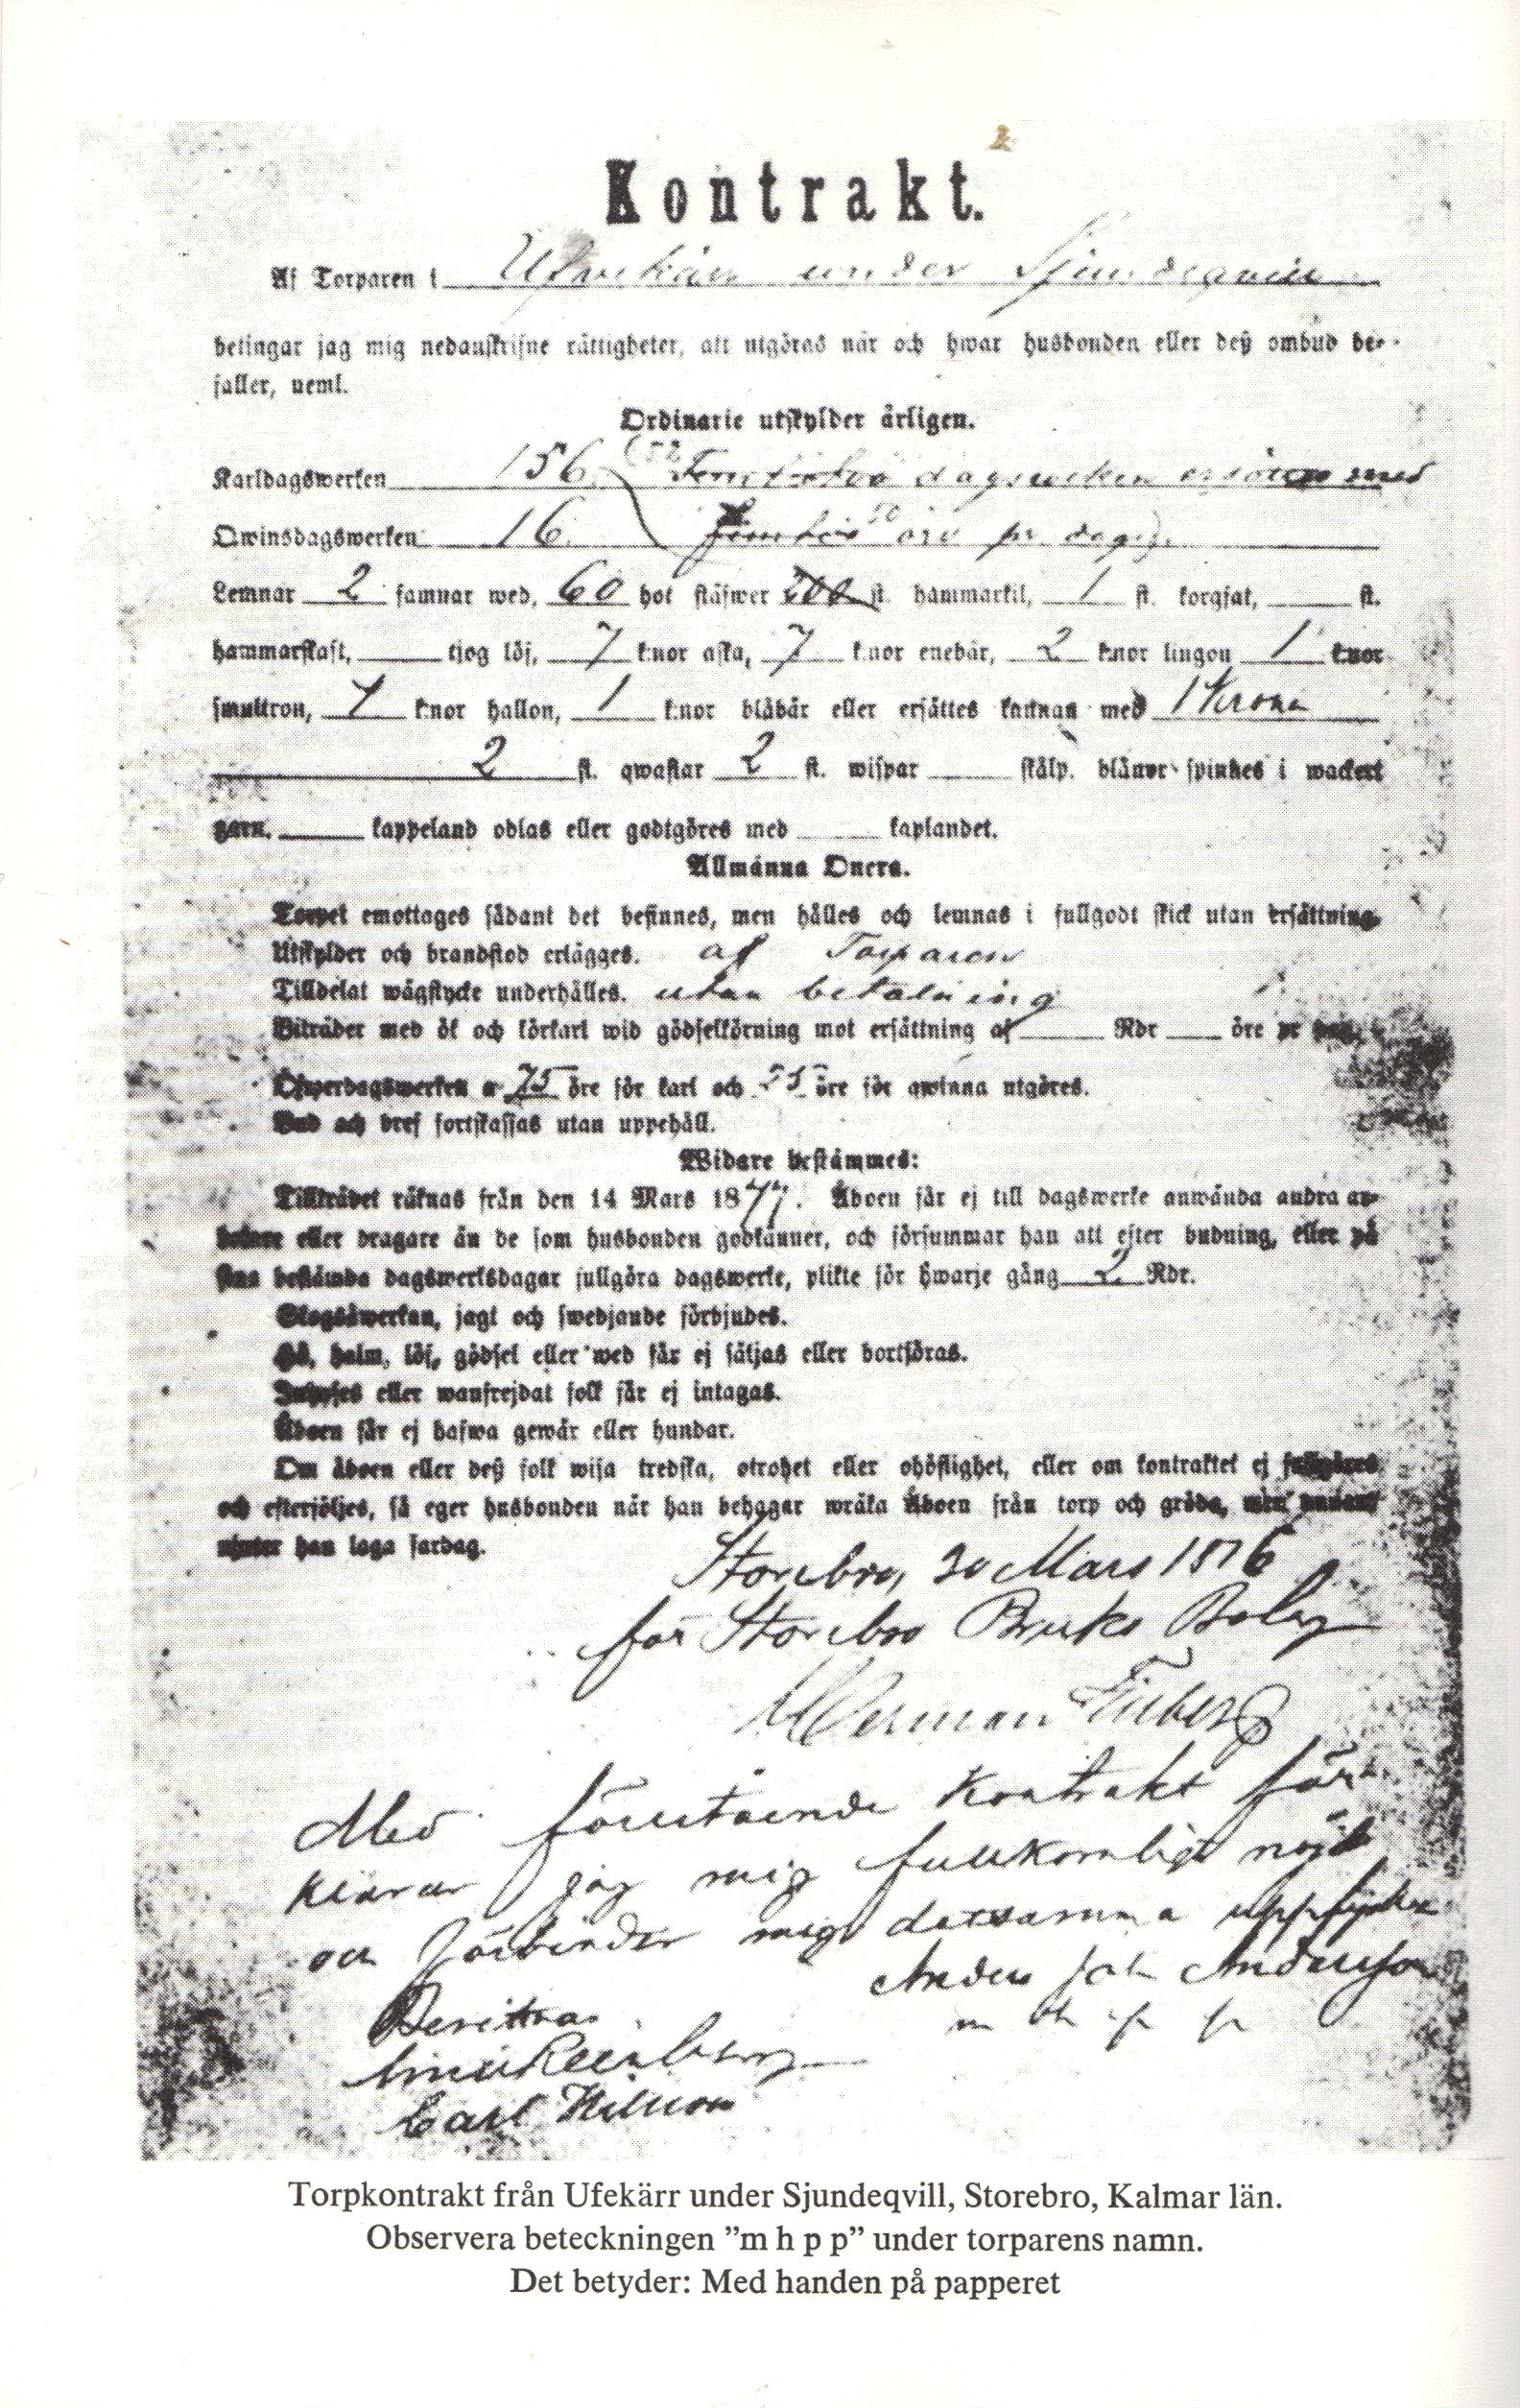 Kontrakt.
Af Torparen i Ufvekärr under Sjundeqvill
betingar jag mig nedanskrifne rättigheter, att utgöras när och hwar husbonden eller deß ombud be-
faller, neml.
Ordinarie utskylder årligen.
Karldagswerken 156. (52 Femtiotvå dagsverken ersättes med
Qwinsdagswerken 16. femtio 50 öre pr dag).
Lemnar 2 famnar wed, 60 hot stäfwer 200 st. hammarkil, 1 st. korgfat, st.
hammarskaft, tjog löf, 7 k:nor aska, 7 k:nor enebär, 2 k:nor lingon 1 k:nor
smultron, 1 k:nor hallon, 1 k:nor blåbär eller ersättes kannan med 1 Krona
2 st. qwastar 2 st. wispar skålp. blånor spinnes i wackert
garn. kappeland odlas eller godtgöres med kaplandet.
Allmänna Onera.
Torpet emottages sådant det befinnes, men hålles och lemnas i fullgodt skick utan ersättning.
Utskylder och brandstod erlägges. af Torparen
Tilldelat wägstycke underhålles. utan betalning
Biträder med ök och körkarl wid gödselkörning mot ersättning af Rdr öre pr dag.
Öfwerdagswerken a 75 öre för karl och 55 öre för qwinna utgöres.
Bud och bref fortskaffas utan uppehåll.
Widare bestämmes:
Tillträdet räknas från den 14 Mars 1877. Åboen får ej till dagswerke anwända andra ar-
betare eller dragare än de som husbonden godkänner, och försummar han att efter budning, eller på
sina bestämda dagswerksdagar fullgöra dagswerke, plikte för hwarje gång 2 Rdr.
Skogsåwerkan, jagt och swedjande förbjudes.
Hö, halm, löf, gödsel eller wed får ej säljas eller bortföras.
Inhyses eller wanfrejdat folk får ej intagas.
Åboen får ej hafwa gewär eller hundar.
Om åboen eller deß folk wisa tredska, otrohet eller ohöflighet, eller om kontraktet ej fullgöres
och efterföljes, så eger husbonden när han behagar wräka Åboen från torp och gröda, men annars
njuter han laga fardag.
Storebro, 30 Mars 1876
för Storebro Bruks Bolag
Herman
Med förestående Kontrakt för
klarar jag mig fullkomligt nöjd
och förbinder mig detsamma uppfylla
Anders Joh Andersson
m h p p
Bevittnas
Carl Nilsson
Torpkontrakt från Ufekärr under Sjundeqvill, Storebro, Kalmar län.
Observera beteckningen ”m h p p” under torparens namn.
Det betyder: Med handen på papperet